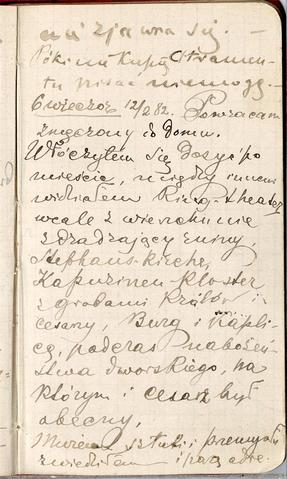 nie zjawia się. —
Póki nie kupię Atramen-
tu pisać nie mogę. —
6 wieczor 12/2 82. Powracam
zmęczony do domu.
Włóczyłem się dosyć po
mieście, między innemi
widziałem Ring-theater
wcale z wierzchu nie
zdradzający ruiny,
Stephans-kirche,
Kapuzinen-kloster
z grobami Królów i
cesarzy, Burg i Kapli-
cę, podczas nabożeń
stwa dworskiego, na
którym i cesarz był
obecny,
Muzeum sztuki i przemysłu
zwiedziłem i